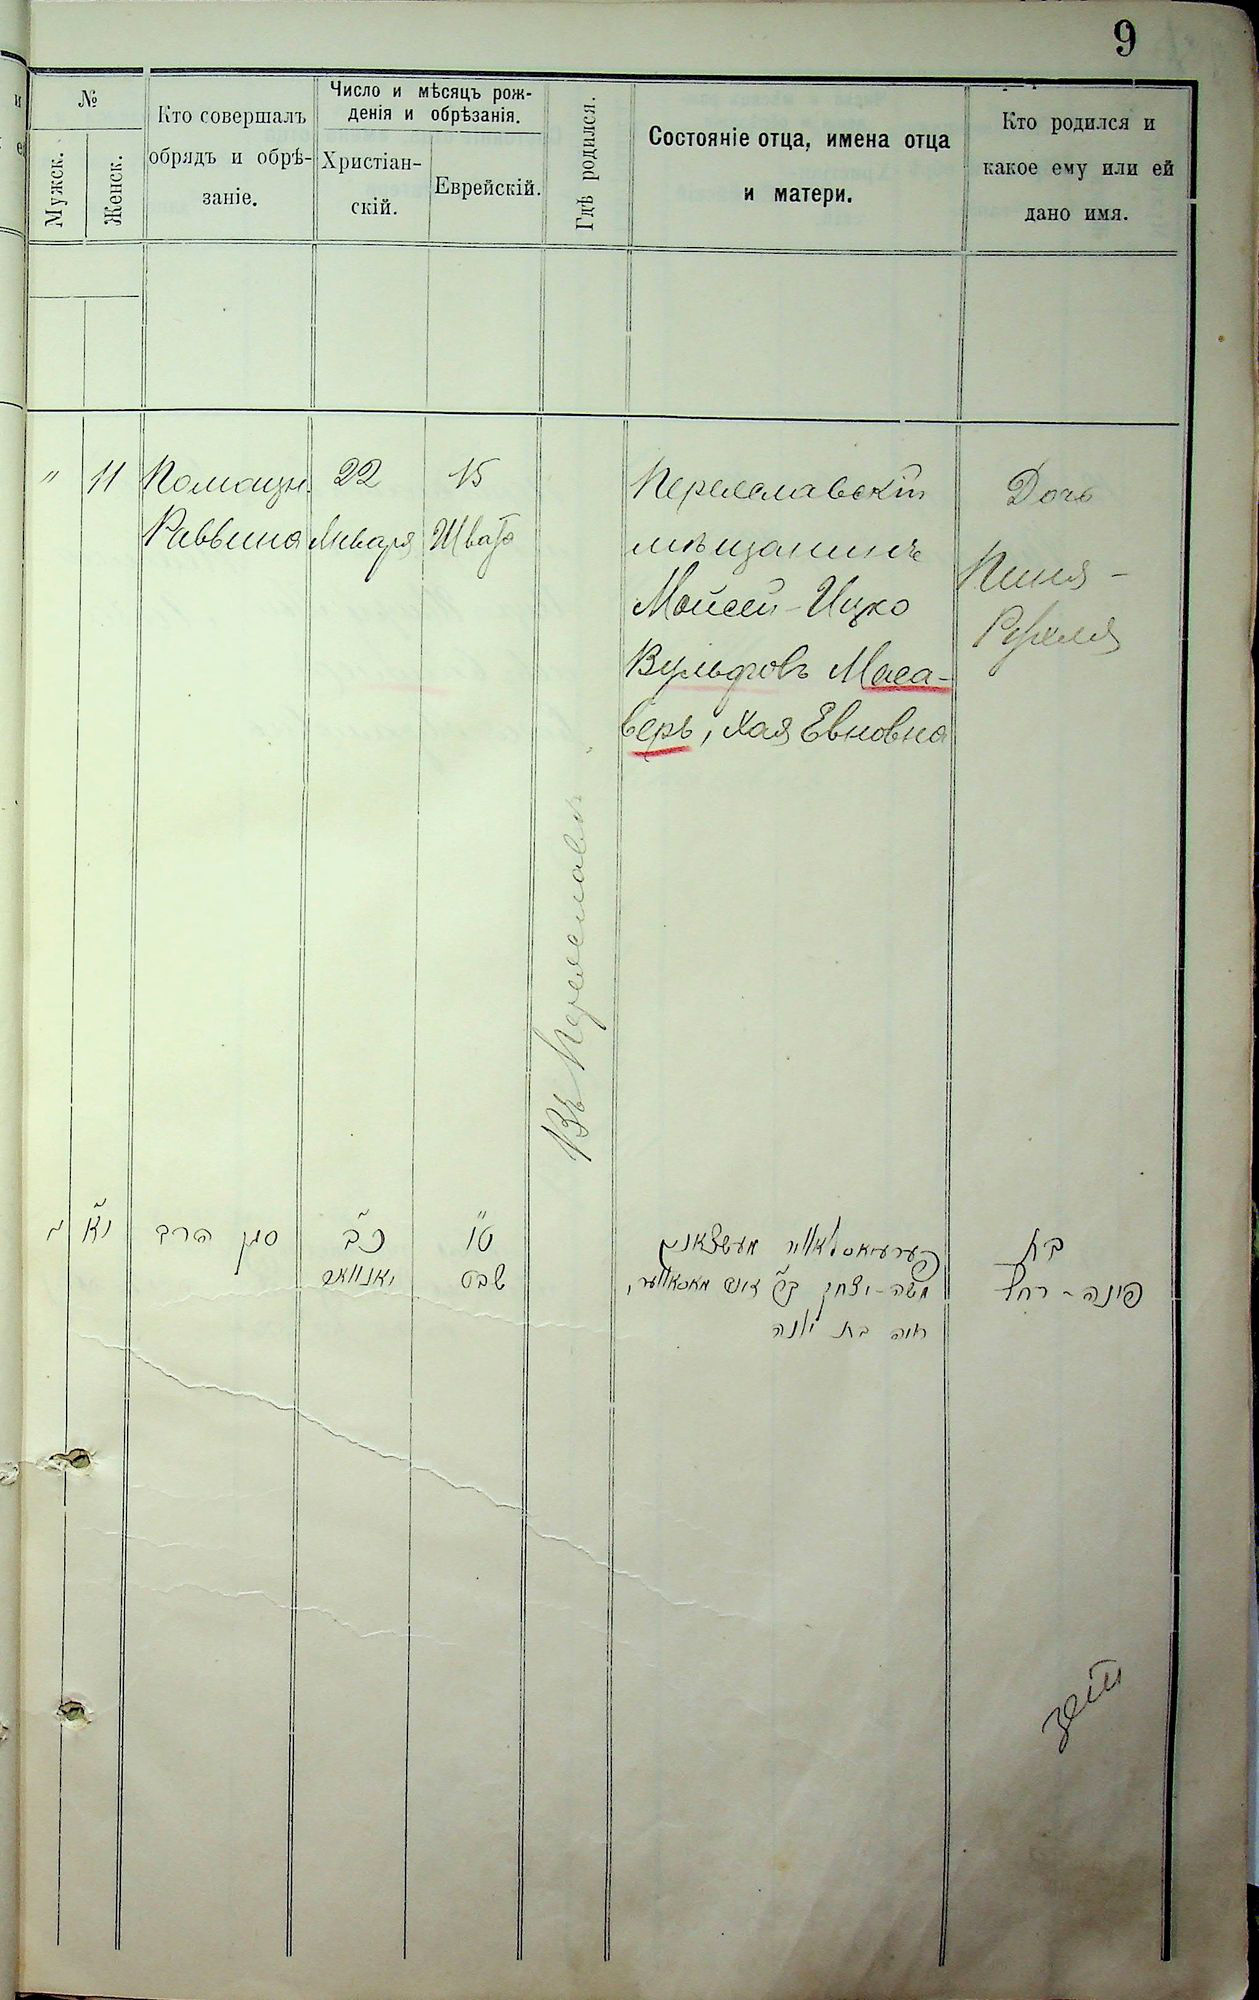 9
№
Мужск.
Женск.
Кто совершалъ
обрядъ и обрѣ-
заніе.
Число и мѣсяцъ рож-
денія и обрѣзанія.
Христіан-
скій.
Еврейскій.
Гдѣ родился.
Состояніе отца, имена отца
и матери.
Кто родился и
какое ему или ей
дано имя.
" 11
Помощн.
Раввина
22
Января
15
Швата
Въ Переяславѣ
Переяславскій
мѣщанинъ
Мойсей-Ицко
Вульфовъ Маса-
веръ, Хая Евновна
Дочь
Пиня-
Рухля
י״א
סגן הרב
כ״ב
יאנוואר
ט״ו
שבט
משה-יצחק
חיה בת יונה
בת
פינה-רחל